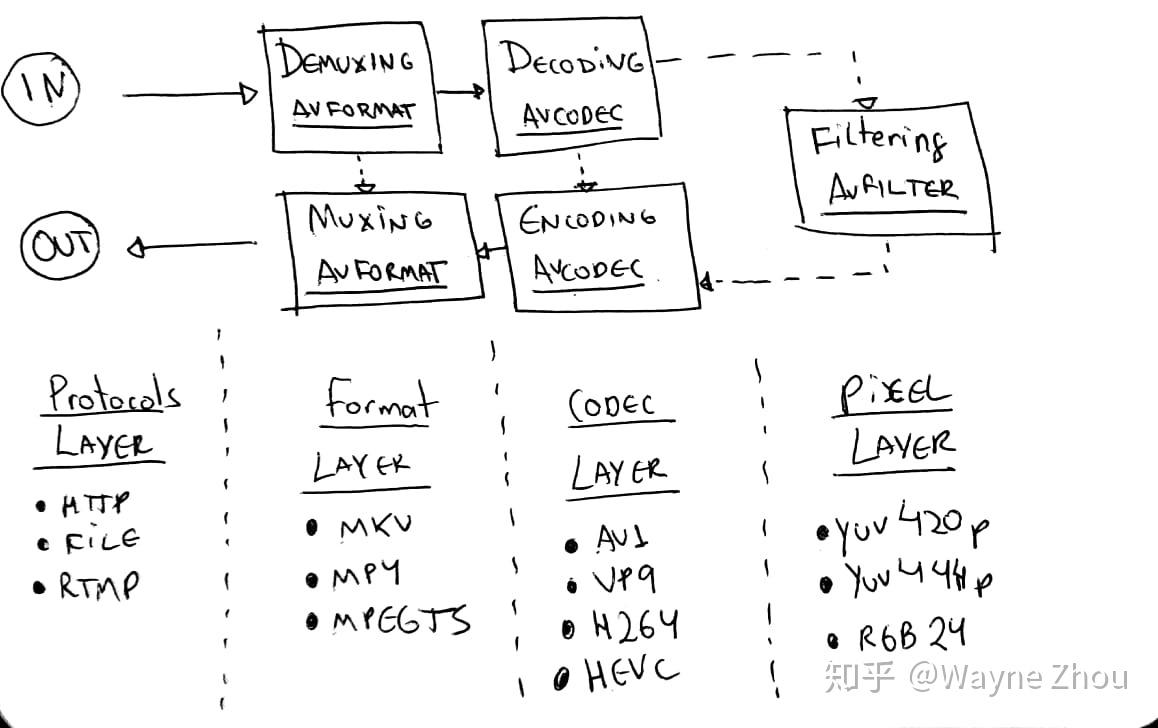 IN
DEMUXING
AVFORMAT
DECODING
AVCODEC
Filtering
AVFILTER
OUT
MUXING
AVFORMAT
ENCODING
AVCODEC
Protocols
LAYER
• HTTP
• FILE
• RTMP
Format
LAYER
• MKV
• MP4
• MPEGTS
CODEC
LAYER
• AV1
• VP9
• H264
• HEVC
PiXEL
LAYER
• YUV420p
• YUV444p
• RGB24
知乎 @Wayne Zhou